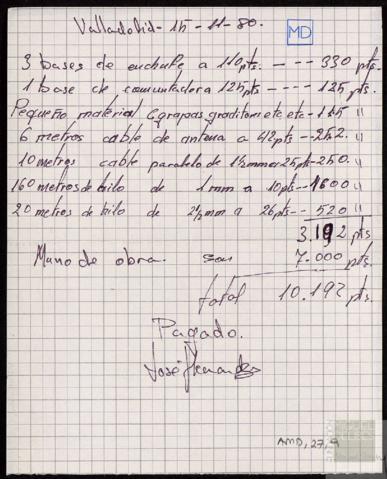 Valladolid - 15 - 11 - 80.
MD
3 bases de enchufe a 110 pts. --- 330 pts.
1 base de conmutadera 125 pts --- 125 pts.
Pequeño material (grapas, etc, etc - 115 "
6 metros cable de antena a 42 pts -- 252. "
10 metros cable paralelo de 1½ mm a 25 pts - 250. "
160 metros de hilo de 1 mm a 10 pts - 1600 "
20 metros de hilo de 2½ mm a 26 pts -- 520 "
3.192 pts
Mano de obra. son 7.000 pts.
total 10.192 pts.
Pagado.
José Hernandez
AMD, 27, 9